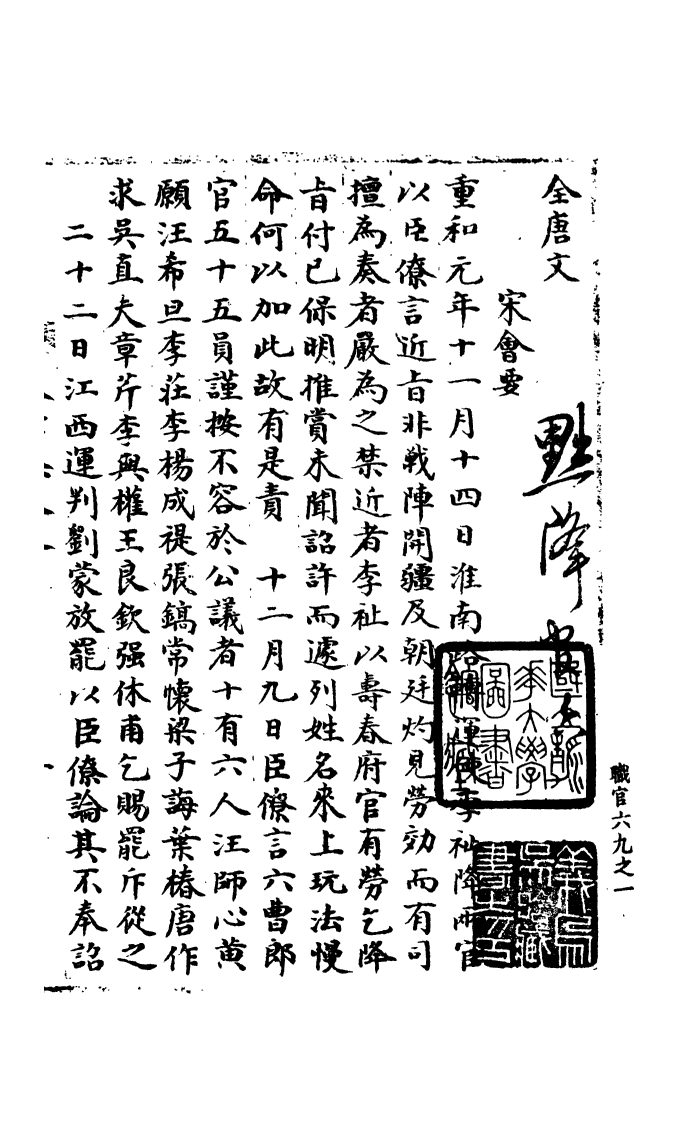 全唐文
宋會要
黜降官
重和元年十一月十四日淮南路轉運使李祉降兩官
以臣僚言近旨非戰陣開疆及朝廷灼見勞効而有司
擅為奏者嚴為之禁近者李祉以壽春府官有勞乞降
旨付已保明推賞未聞詔許而遽列姓名來上玩法慢
命何以加此故有是責 十二月九日臣僚言六曹郎
官五十五員謹按不容於公議者十有六人汪師心黃
願汪希旦李莊李楊成禔張鎬常懷梁子誨葉椿唐作
求吳直夫章芹李與權王良欽强休甫乞賜罷斥從之
二十二日江西運判劉蒙放罷以臣僚論其不奉詔
職官六九之一